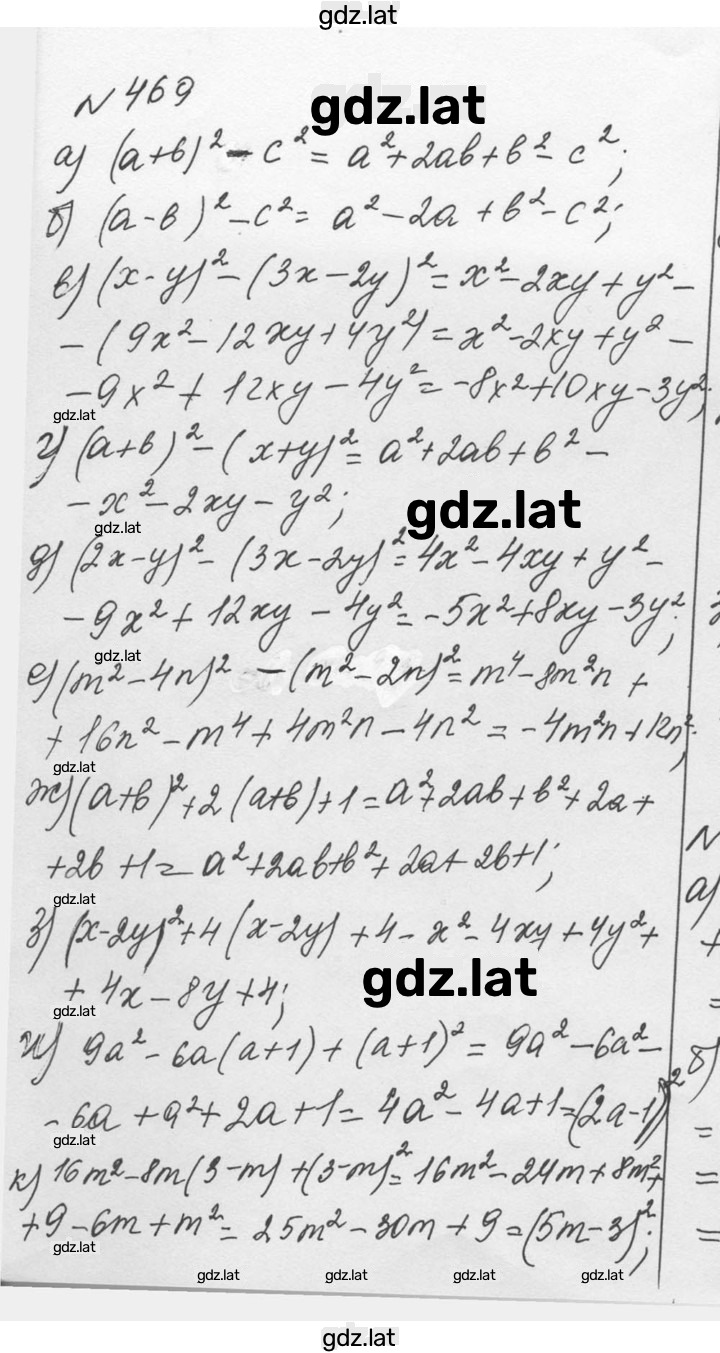 gdz.lat
№ 469
gdz.lat
а) (a+b)² - c² = a² + 2ab + b² - c²;
б) (a-b)² - c² = a² - 2a + b² - c²;
в) (x-y)² - (3x-2y)² = x² - 2xy + y² -
- (9x² - 12xy + 4y²) = x² - 2xy + y² -
- 9x² + 12xy - 4y² = -8x² + 10xy - 3y²;
gdz.lat
г) (a+b)² - (x+y)² = a² + 2ab + b² -
- x² - 2xy - y²;
gdz.lat
gdz.lat
д) (2x-y)² - (3x-2y)² = 4x² - 4xy + y² -
- 9x² + 12xy - 4y² = -5x² + 8xy - 3y²;
gdz.lat
е) (m² - 4n)² - (m² - 2n)² = m⁴ - 8m²n +
+ 16n² - m⁴ + 4m²n - 4n² = -4m²n + 12n²;
gdz.lat
ж) (a+b)² + 2(a+b) + 1 = a² + 2ab + b² + 2a +
+ 2b + 1 = a² + 2ab + b² + 2a + 2b + 1;
gdz.lat
з) (x-2y)² + 4(x-2y) + 4 - x² - 4xy + 4y² +
+ 4x - 8y + 4;
gdz.lat
gdz.lat
и) 9a² - 6a(a+1) + (a+1)² = 9a² - 6a² -
- 6a + a² + 2a + 1 = 4a² - 4a + 1 = (2a-1)²
gdz.lat
к) 16m² - 8m(3-m) + (3-m)² = 16m² - 24m + 8m² +
+ 9 - 6m + m² = 25m² - 30m + 9 = (5m-3)²;
gdz.lat
gdz.lat gdz.lat gdz.lat gdz.lat
№
а)
+
=
б)
=
=
=
gdz.lat